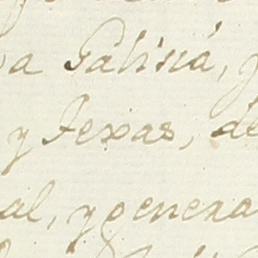 a Galicia,
y Texas, de
al, y genera